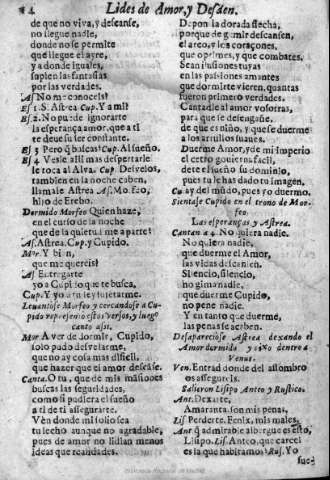 24 Lides de Amor, y Desden.
de que no viva, y descanse,
no llegue nadie,
donde no se permite
que llegue el ayre,
y adonde iguales,
suplen las fantasias
por las verdades.
As. No me conoceis?
Es. 1. Si Astrea Cup. Y a mi?
Es. 2. No puede ignorarte
la esperança amor, que a ti
te deve su ser constante.
Es. 3 Pero q̃ buscas? Cup. Al sueño.
Es. 4. Vesle alli mas despertarle
le toca al Alva. Cup. Desvelos,
tambien en la noche caben,
llamale Astrea As. Morfeo,
hijo de Erebo.
Dormido Morfeo Quien haze,
en el curso de la noche
que de la quietud me aparte?
As. Astrea. Cup. y Cupido.
Mor. Y bien,
que me quereis?
As Entregarte
yo a Cupido que te busca,
Cup. Y yo a tu ley sujetarme.
Levantase Morfeo y cercandose a Cupido
representa estos versos, y luego
canto assi.
Mor. A ver dormir, Cupido,
solo pudo desvelarme,
que no ay cosa mas dificil,
que hazer que el amor descanse.
Canta. O tu, que de mis mansiones
buscas las seguridades,
como si pudiera el sueño
a ti de ti assegurarte.
Ven donde mi solio sea
tu lecho aunque no agradable,
pues de amor no lidian menos
ideas que realidades.
Depon la dorada flecha,
porque de gemir descansen,
el arco, y los coraçones,
que oprimes, y que combates.
Sean ilusiones tuyas
en las passiones amantes
que dormirte vieren, quantas
fueron primero verdades.
Cantadle al amor vosotras,
para que se desengañe,
de que es niño, y que se duerme
a los arrullos suaves.
Duerme Amor, y de mi Imperio
el cetro govierna facil,
dete el sueño su dominio,
pues tu le has dado tu imagen,
Cu ay del mũdo, pues yo duermo.
Sientase Cupido en el trono de Morfeo.
Las esperanças y Astrea.
Cantan a 4. No quiera nadie.
No quiera nadie,
que duerme el Amor,
las vidas descansen.
Silencio, silencio,
no gima nadie,
que duerme Cupido,
no pene nadie.
Y en tanto que duerme,
las penas se acaben.
Desapareciose Astrea dexando el
Amor dormido y dixo dentro a
Venus.
Ven. Entrad donde del assombro
os asseguris.
Salieron Lispo Anteo y Rustico.
Ant. Dexarte,
Amaranta son mis penas,
Lis Perderte. Fenix, mis males,
Ant Q admitirte albergue es esto,
Lispo. Lis. Anteo, que carcel
es la que habitamos? Rus. Yo
sue-